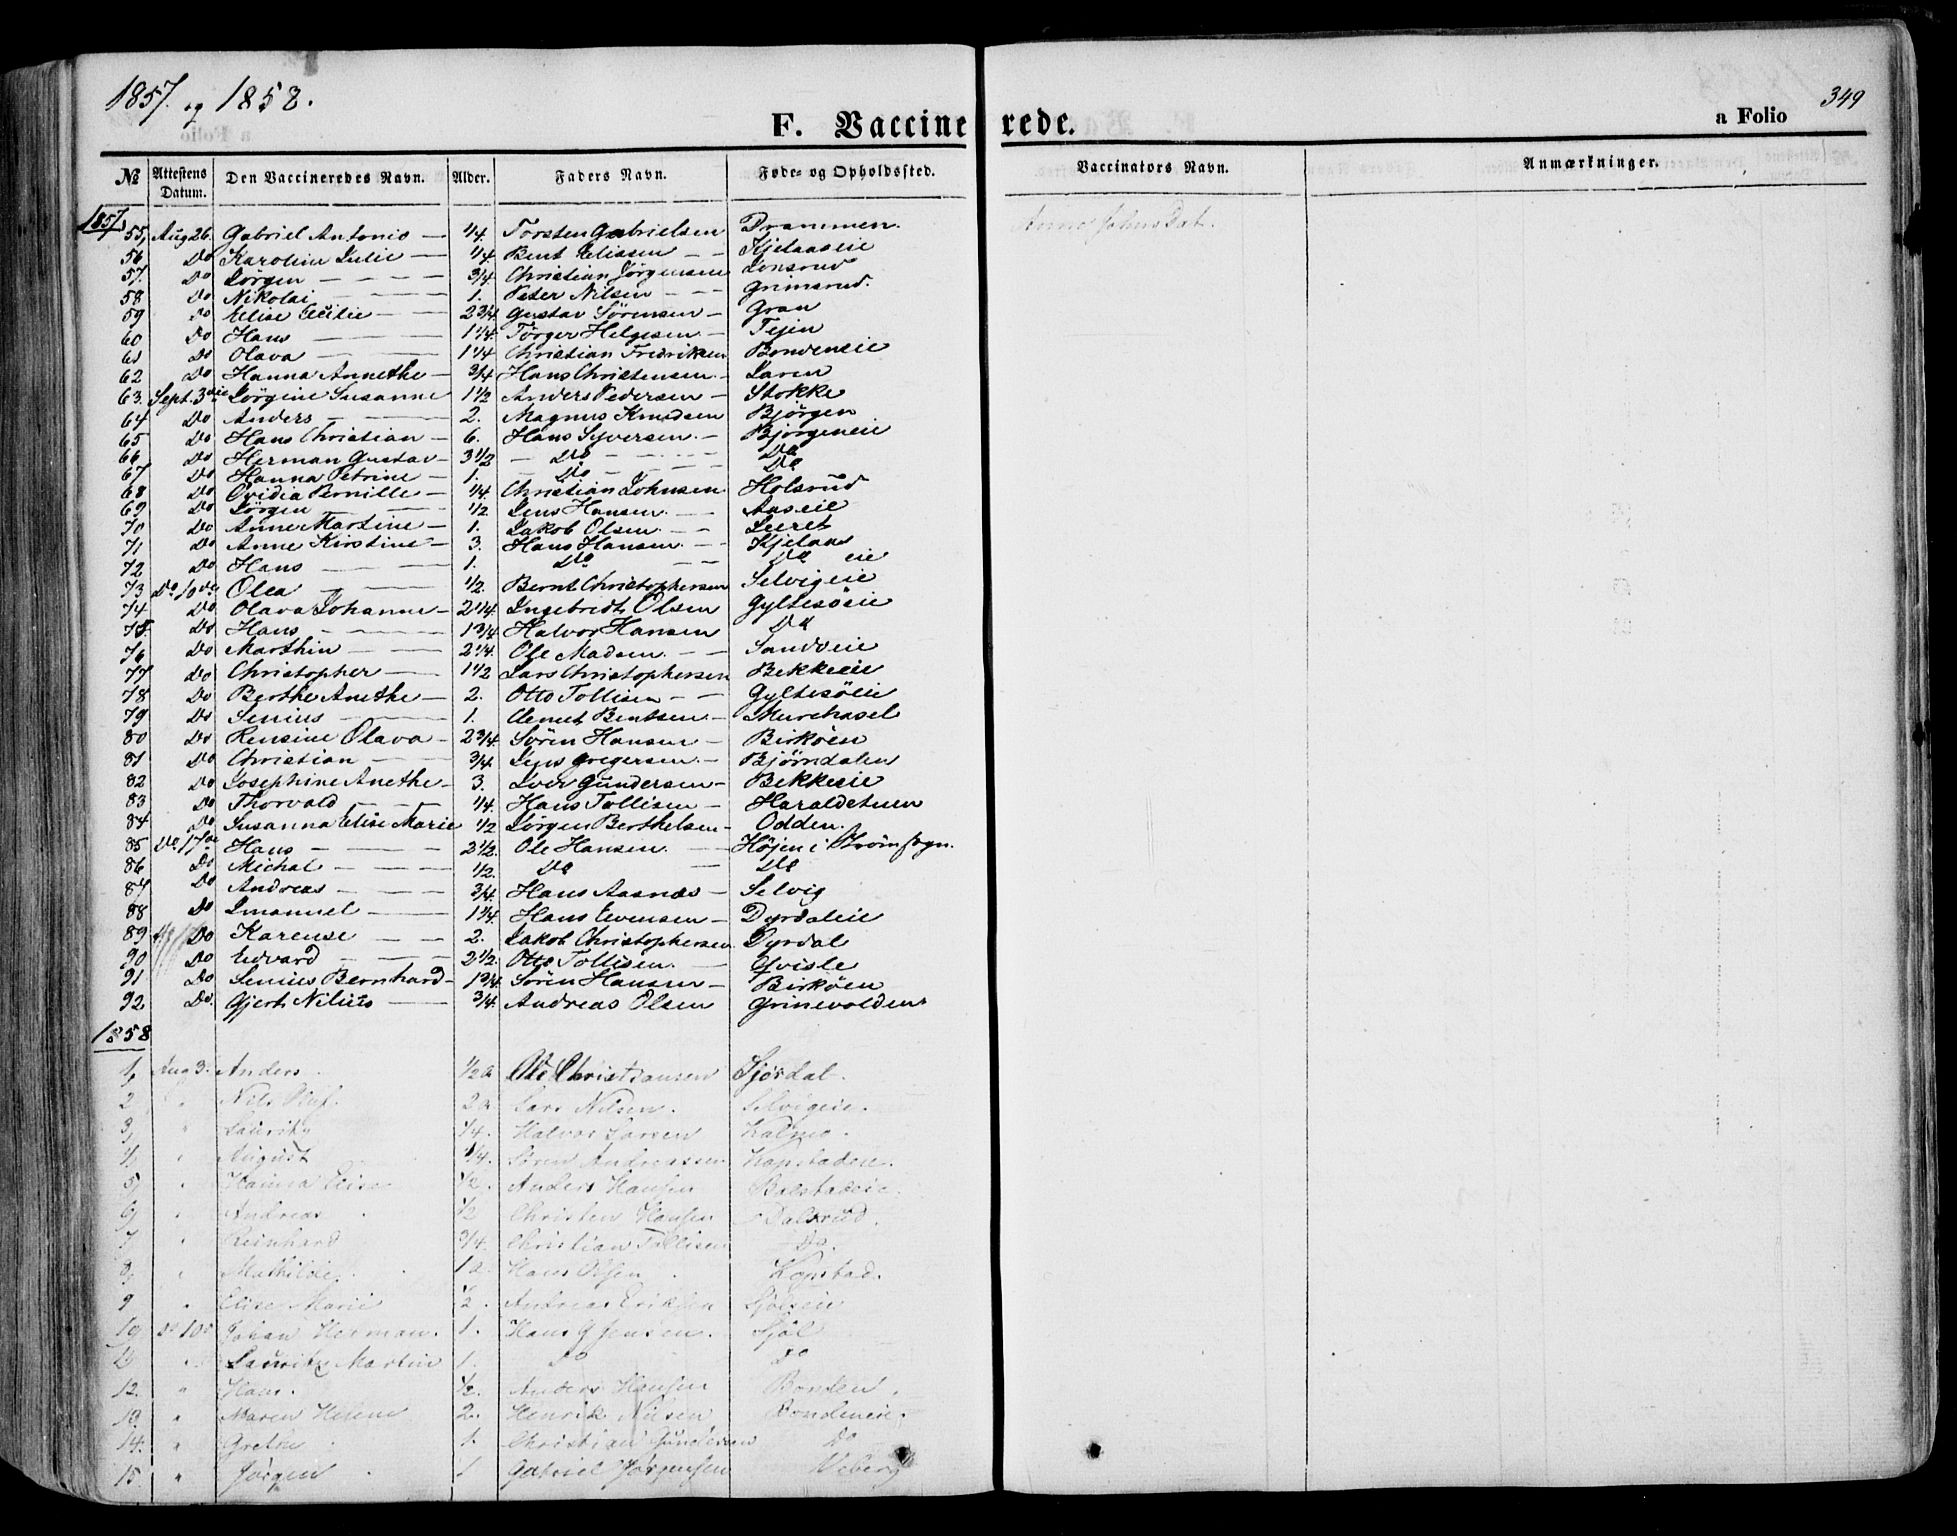 1857. og 1858.
F. Vaccinerede.
a Folio 349
No Attestens Datum. Den Vaccineredes Navn. Alder. Faders Navn. Føde- og Opholdssted. Vaccinators Navn. Anmærkninger.
1857
55, Aug 26. Gabriel Antonio — 1/4. Torsten Gabrielsen Drammen. Anne Johns Dat.
56 Do Karoline Julie — 1/4. Bent Elissen — — Kjelaaseie
57. Do Jörgen — — — 3/4 Christian Jörgensen Lonsrud
58 Do Nikolai — — — 1. Peter Nilsen — — Grimsrud.
59 Do Elise — — 2 3/4. Gustav Sörensen — Gran
60 Do Hans — — — 1 1/4. Törger Helgesen — Tejen
61 Do Olava — — — 1 1/4 Christian Fredriksen Bondeneie
62 Do Hanna Annethe — 3/4 Hans Christensen — Laren
63. Sept. 3die Jörgine Susanne 1 1/2 Anders Pedersen — Stokke
64 Do Anders — — — 2. Magnus Knudsen Bjørgen
65 Do Hans Christian — 6. Hans Syversen. — Bjørgeneie
66 Do Herman Gustav — 3 1/2 — Do — — — Do
67 Do Hanna Petrine — 1. Do — — — Do
68 Do Ovidia Pernille — 1/4. Christian Johnsen Holsrud
69 Do Jörgen — — 1/2 Jens Hansen. — Aaseie
70 Do Anne Martine — 1. Jakob Olsen — — Leeret
71 Do Anne Kirstine — 3. Hans Hansen — — Kjelaas
72 Do Hans — — — 1. Do — — Do eie
73 Do 10de Olea — — — 1/2 Bernt Christophersen Selvigeie
74 Do Olava Johanne — 2 1/4. Ingebredt Olsen Gyltesöeie
75. Do Hans — — — 1 3/4 Halvor Hansen Do
76 Do Marthin — — — 2 1/4. Ole Madsen. — — Sandveie
77 do Christopher — — 1 1/2 Lars Christophersen Bekkeeie
78 Do Berthe Anethe — 2. Otto Tollisen — — Gyltesöeie
79 Do Senius — — — 1. Clemet Bentsen — Murehasel
80 Do Rensine Olava — 2 3/4. Sören Hansen — Birköen
81 Do Christian — — 3/4 Jens Gregersen — Bjørndalen
82 Do Josephine Anethe — 3. Iver Gundersen — Bekkeeie
83 Do Thorvald — — 1/4. Hans Tollisen — Haraldstuen
84 Do Susanna Elise Marie 1/2 Jörgen Berthelsen — Odden.
85 Do 17de Hans — — — 2 1/2. Ole Hansen — — Højen i Strömsogn.
86 Do Michal — — — 1/2. Do — Do
87 Do Andreas — — — 3/4. Hans Aasnæs — Selvig
88 Do Imanuel — — — 1 1/4. Hans Evensen — Dyrdaleie
89 Do Karense — — 2. Jakob Christophersen Dyrdal
90 Do Edvard — — — 2 1/2. Otto Tollisen. — Qvisle
91 Do Senius Bernhard — 1 3/4. Sören Hansen — Birköen
92, Do. Gjerth Nilius — — 3/4. Andreas Olsen Grinevolden
1858
1, Aug 3. Anders. 1/2 a Ole Christiansen Fjördal.
2 " Nils Oluf. 2 a Lars Nilsen. Selvigeie.
3, " Lauritz 1/4. Halvor Larsen Kalmo.
4, " August 1/4. Sören Andreassen Kopstadeie.
5, " Hanna Elise 1/2. Anders Hansen Bolstadeie.
6, " Andreas 1/2 Christen Hansen Dalsrud.
7 " Reinhard 3/4. Christian Tollisen Do.
8, " Mathilde. 1 a. Hans Olsen. Kopstad.
9 " Elise Marie 1/2. Andreas Eriksen Sjöleie
10, do 10de Johan Herman. 1. Hans G Jensen. Sjöl
11, " Lauritz Martin 1. Do Do
12. " Hans. 1/2. Anders Hansen Bonden.
13. " Maren Helene 2. Henrik Nilsen Bondeneie.
14. " Grethe 1. Christian Gundersen Do
15. " Jörgen. 1 Gabriel Jörgensen Weberg